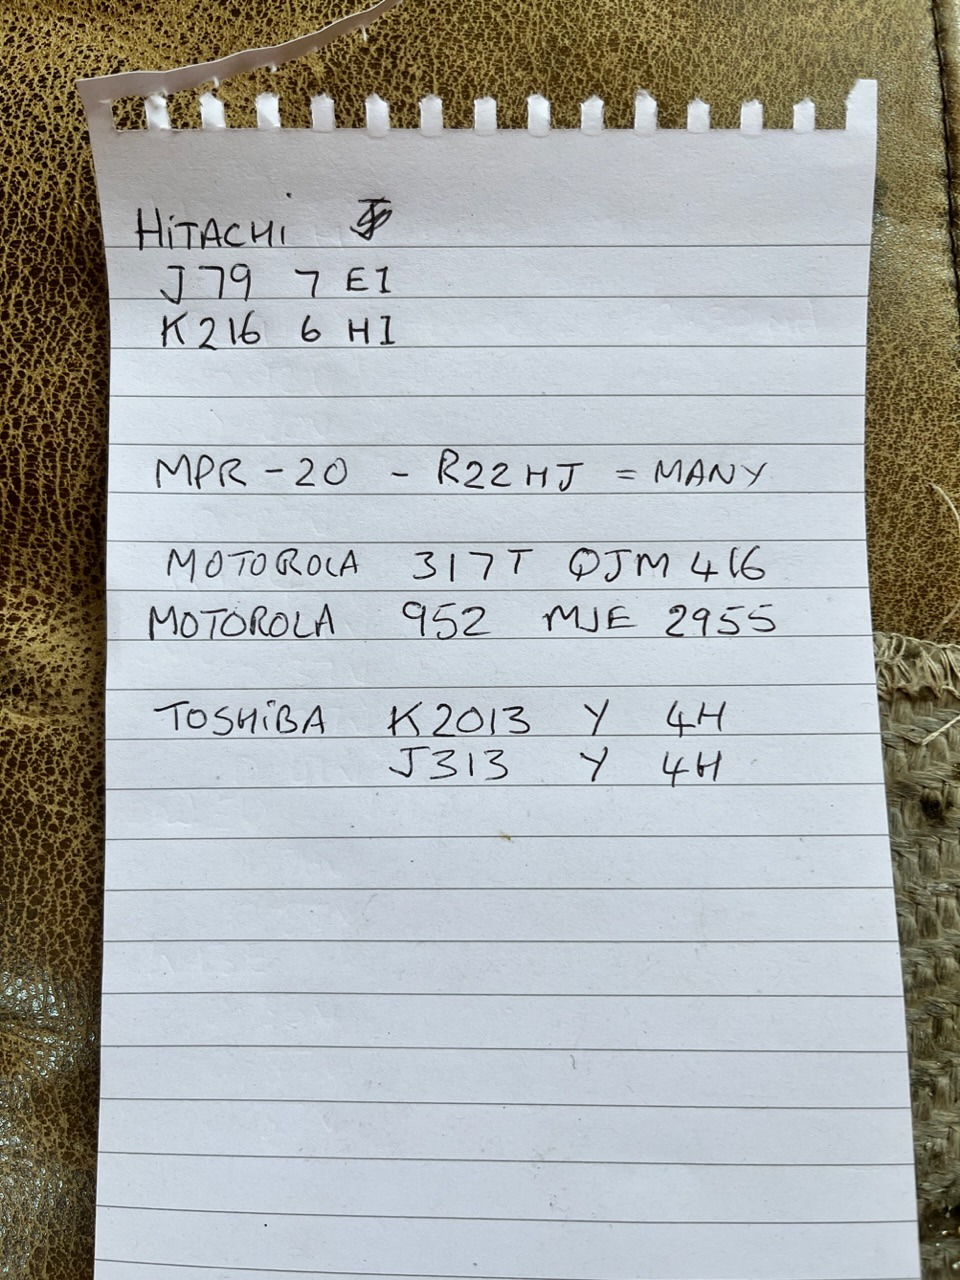 HiTACHi
J79 7 EI
K216 6 HI
MPR - 20 - R22HJ = MANY
MOTOROLA 317T QJM 416
MOTOROLA 952 MJE 2955
TOSHiBA K2013 Y 4H
J313 Y 4H